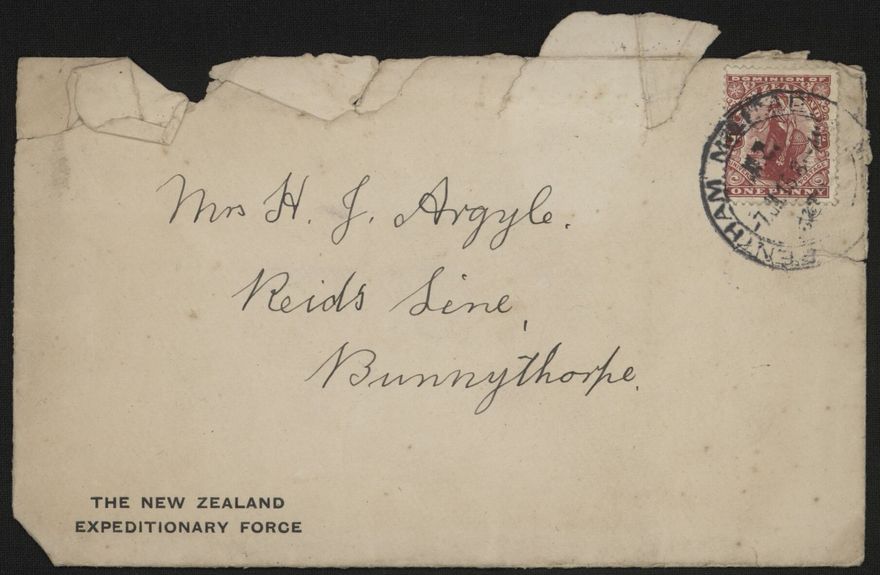 DOMINION OF
ZEALAND
ONE PENNY
Mrs H. J. Argyle.
Reids Line,
Bunnythorpe.
THE NEW ZEALAND
EXPEDITIONARY FORCE